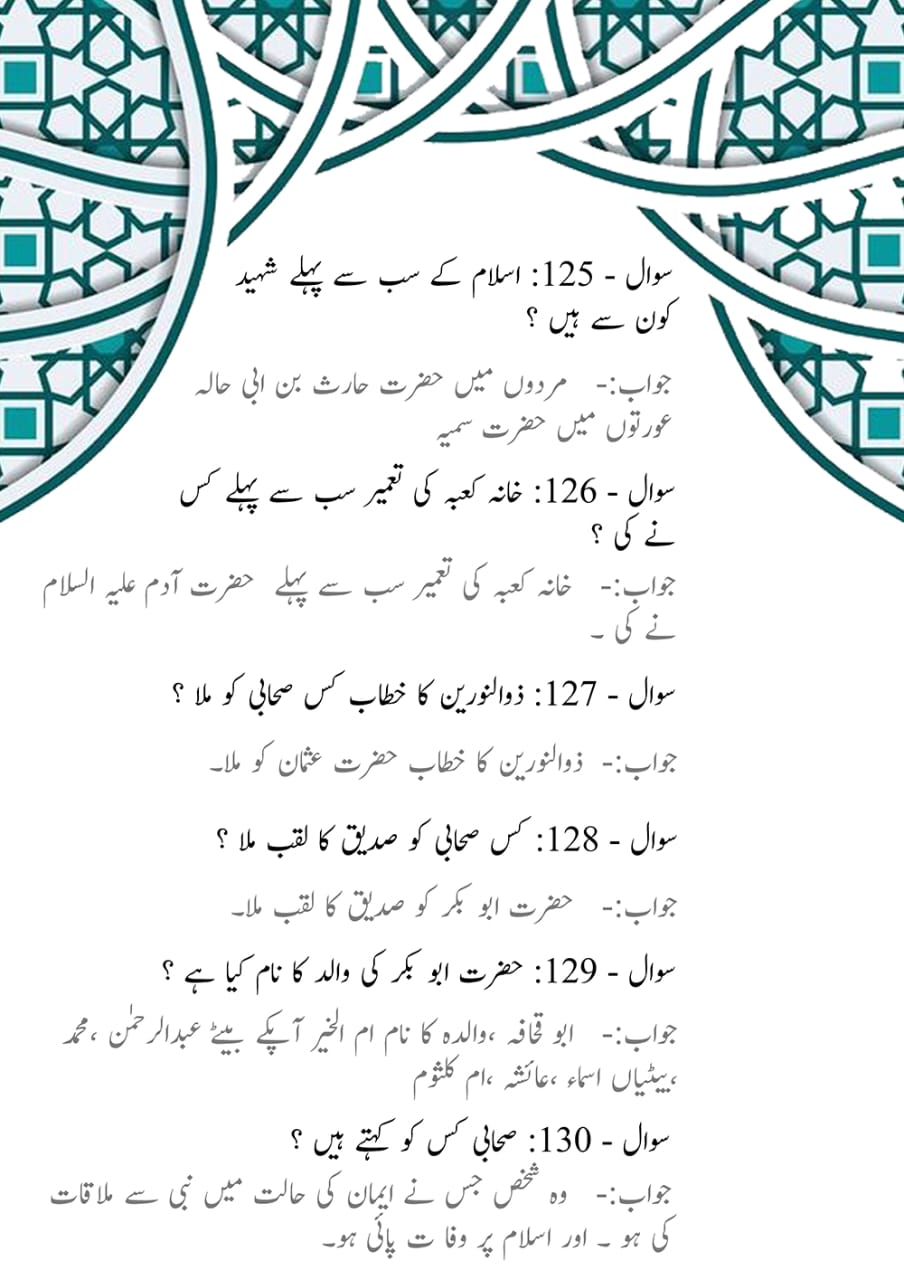 سوال - 125: اسلام کے سب سے پہلے شہید
کون سے ہیں ؟
جواب:- مردوں میں حضرت حارث بن ابی حالہ
عورتوں میں حضرت سمیہ
سوال - 126: خانہ کعبہ کی تعمیر سب سے پہلے کس
نے کی ؟
جواب:- خانہ کعبہ کی تعمیر سب سے پہلے حضرت آدم علیہ السلام
نے کی ۔
سوال - 127: ذوالنورین کا خطاب کس صحابی کو ملا ؟
جواب:- ذوالنورین کا خطاب حضرت عثمان کو ملا۔
سوال - 128: کس صحابی کو صدیق کا لقب ملا ؟
جواب:- حضرت ابو بکر کو صدیق کا لقب ملا۔
سوال - 129: حضرت ابو بکر کی والد کا نام کیا ہے ؟
جواب:- ابو قحافہ ،والدہ کا نام ام الخیر آپکے بیٹے عبدالرحمٰن ،محمد
،بیٹیاں اسماء ،عائشہ ،ام کلثوم
سوال - 130: صحابی کس کو کہتے ہیں ؟
جواب:- وہ شخص جس نے ایمان کی حالت میں نبی سے ملاقات
کی ہو ۔ اور اسلام پر وفا ت پائی ہو۔